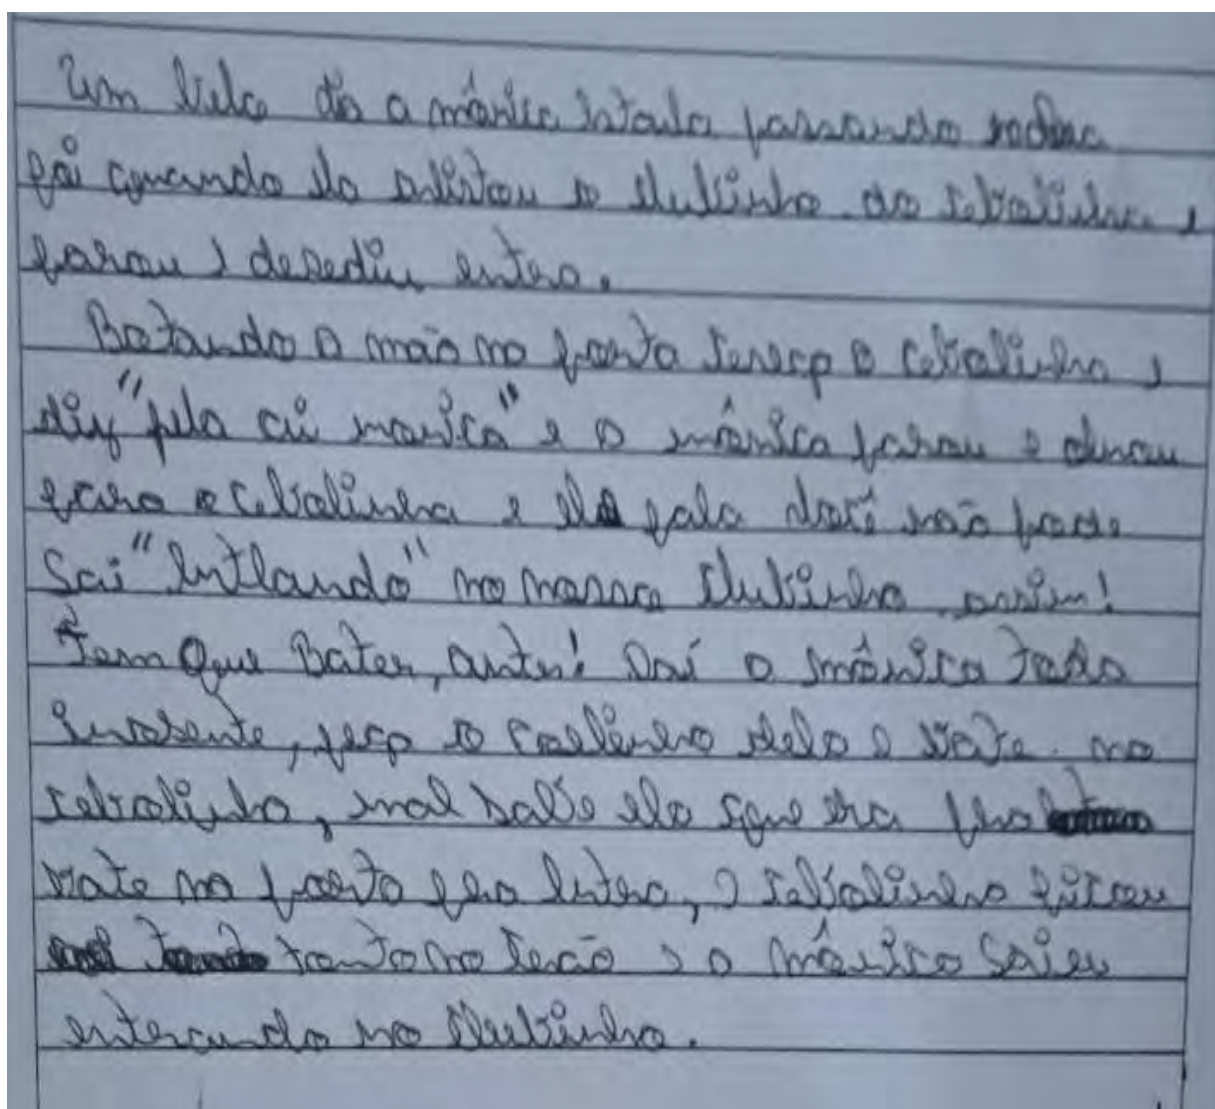 Um belo dia a mônica estava passando
foi quando ela avistou o clubinho do sebolinha e
parou e desediu entra.
Botando a mão na porta o cebolinha e
diz "pela ai monica" e a mônica parou e
para o cebolinha e ele fala você não pode
Sai "entlando" no nosso clubinho assim!
Tem que Bater, antes! Daí a mônica toda
inosente, pego o coelinho dela e bate no
sebolinha, mal sabe ela que era pra
bate na poorta pra entra, o sebolinha ficou
tonto no e a mônica saiu
entrando no clubinho.